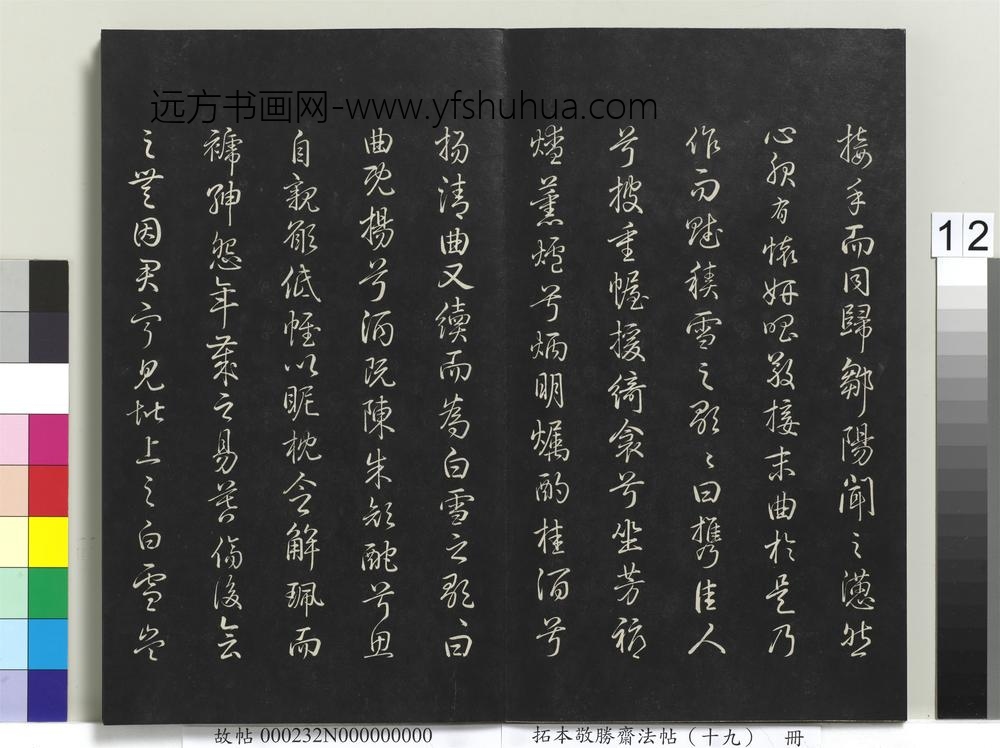 远方书画网-www.yfshuhua.com
接手而同歸鄒陽聞之懣然
心服有懷妍唱敬接末曲於是乃
作而賦積雪之歌〻曰携佳人
兮披重幄援綺衾兮坐芳褥
燎薰爐兮炳明爥酌桂酒兮
揚清曲又續而為白雪之歌〻曰
曲既揚兮酒既陳朱顏酡兮思
自親願低帷以昵枕念解珮而
褫紳怨年歲之易暮傷後會
之無因君寧見階上之白雪豈
12
故帖 000232N000000000
拓本敬勝齋法帖（十九） 冊